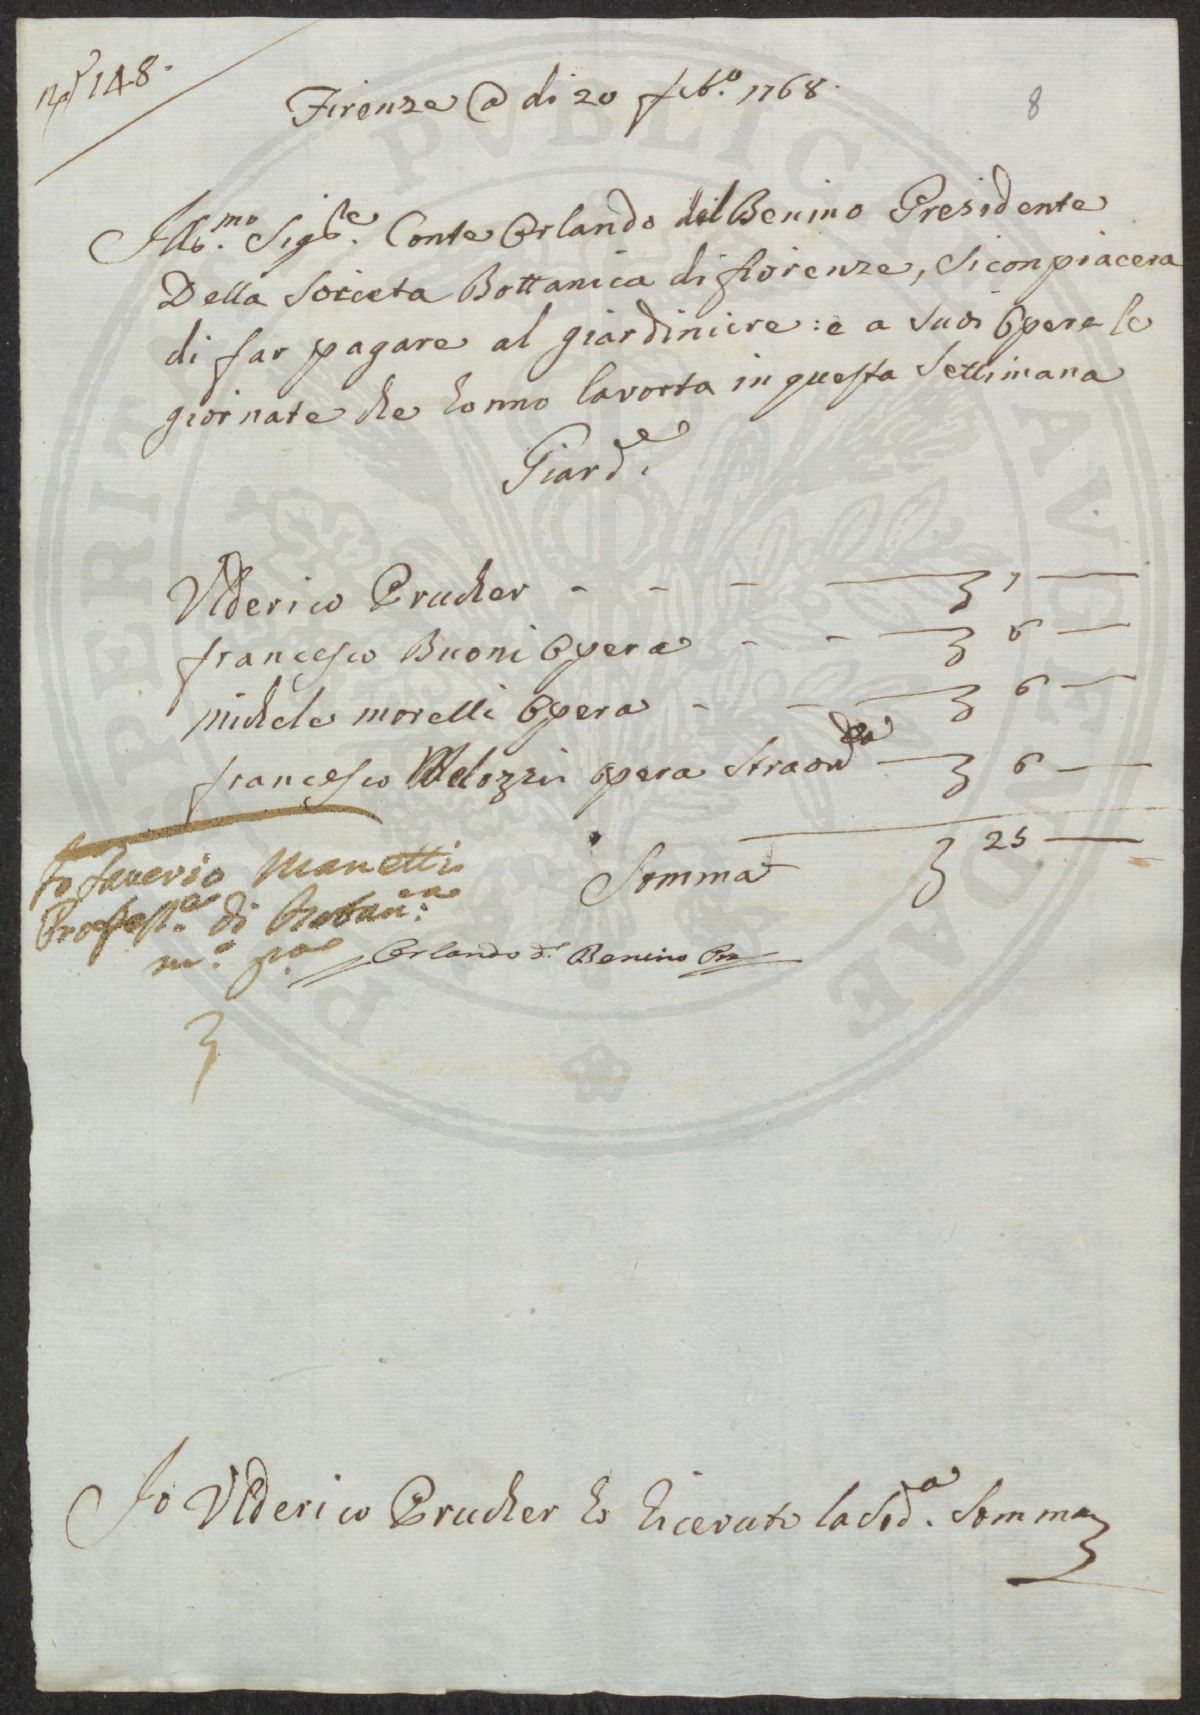 N.º 148.
8
Firenze @ di 20 feb.º 1768.
Ill.mo Sig.re Conte Orlando del Benino Presidente
Della Socceta Bottanica di fiorenze, si conpiacera
di far pagare al giardiniere: e a suoi Opera le
giornate che honno lavorta in questa Settimana
Giard.e
Vlderico Prucker - - - 7 —
francesco Buoni Opera - - 6 —
michele morelli Opera - - 6 —
francesco opera Straord.ra 6 —
Somma 25 —
Io Saverio Manetti
Profess.e di Botan.ca
m.o p.a
Orlando d.l Benino Pre
Io Vlderico Prucker ho ricevuto la sod.a Somma
PERITAE PVBLICAE